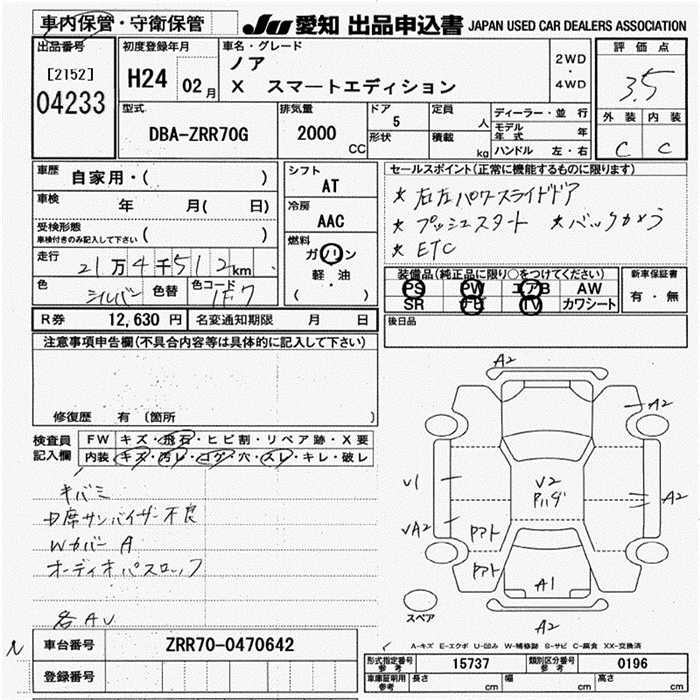 車内保管・守衛保管
JU 愛知 出品申込書 JAPAN USED CAR DEALERS ASSOCIATION
出品番号 初度登録年月 車名・グレード 評価点
[2152] H24 02月 ノア 2WD
04233 X スマートエディション ・ 4WD 3.5
型式 排気量 ドア 定員 ディーラー・並行 外装 内装
DBA-ZRR70G 2000 CC 5 人 モデル年式 年 C C
形状 積載 kg ハンドル 左・右
車歴 自家用・( ) シフト セールスポイント(正常に機能するものに限ります)
AT ★右左パワースライドドア
車検 年 月( 日) 冷房 ★プッシュスタート ★バックカメラ
受検形態 AAC ★ETC
車検付きのみ記入して下さい ( )
走行 21万4千512km 燃料 ガソリン 装備品(純正品に限り○をつけてください) 新車保証書
色 シルバー 色替 色コード 1F7 軽・油 PS PW エアB AW 有・無
( ) SR ナビ TV カワシート
R券 12,630円 名変通知期限 月 日 後日品
注意事項申告欄(不具合内容等は具体的に記入して下さい)
修復歴 有 〔箇所 〕
検査員 FW キズ・飛石・ヒビ割・リペア跡・X要
記入欄 内装 キズ・汚レ・コゲ・穴・スレ・キレ・破レ
キバミ
中席サンバイザー不良
Wカバー A
オーディオパスロック
各AU
A2
A2
V1 V2 A2
Pハゲ
VA2 Pアト
Pアト
A1
スペア A2
A-キズ E-エクボ U-凹み W-補修跡 S-サビ C-腐食 XX-交換済
N 車台番号 ZRR70-0470642
登録番号
形式指定番号 参考 15737 類別区分番号 参考 0196
車庫証明用 参考 長さ cm 幅 cm 高さ cm